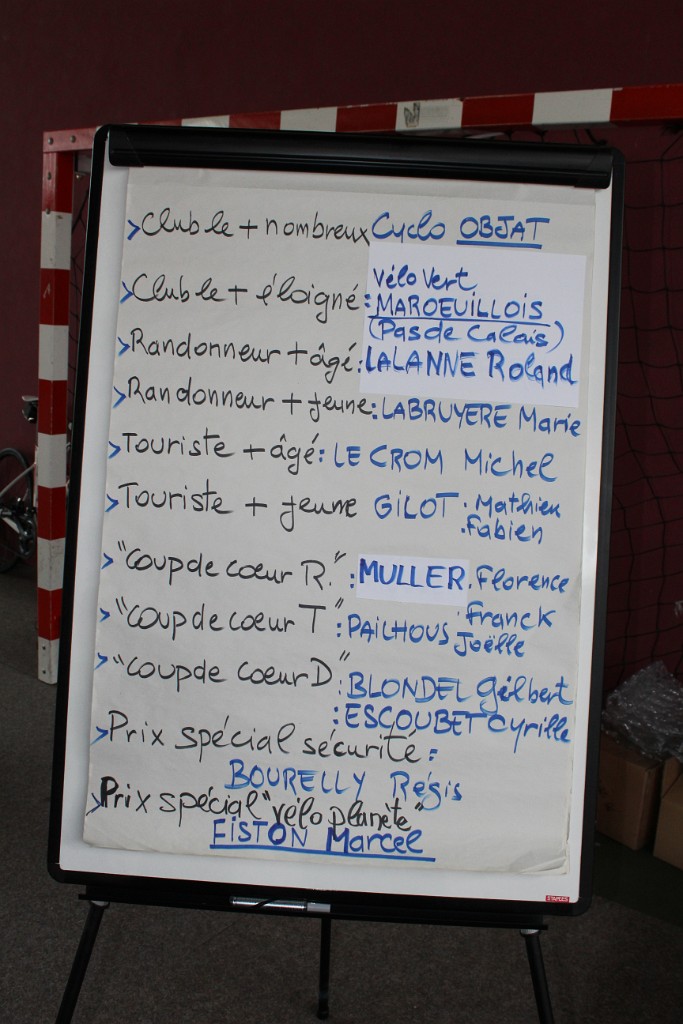 > Club le + nombreux Cyclo OBJAT
> Club le + éloigné : Vélo Vert
MAROEUILLOIS
(Pas de Calais)
> Randonneur + âgé : LALANNE Roland
> Randonneur + jeune : LABRUYERE Marie
> Touriste + âgé : LE CROM Michel
> Touriste + jeune GILOT . Mathieu
. Fabien
> "coup de cœur R." : MULLER . Florence
> "coup de cœur T" : PAILHOUS Franck
Joëlle
> "coup de cœur D" : BLONDEL Gilbert
: ESCOUBET Cyrille
> Prix spécial sécurité :
BOURELLY Régis
> Prix spécial "vélo planète"
FISTON Marcel
STAPLES